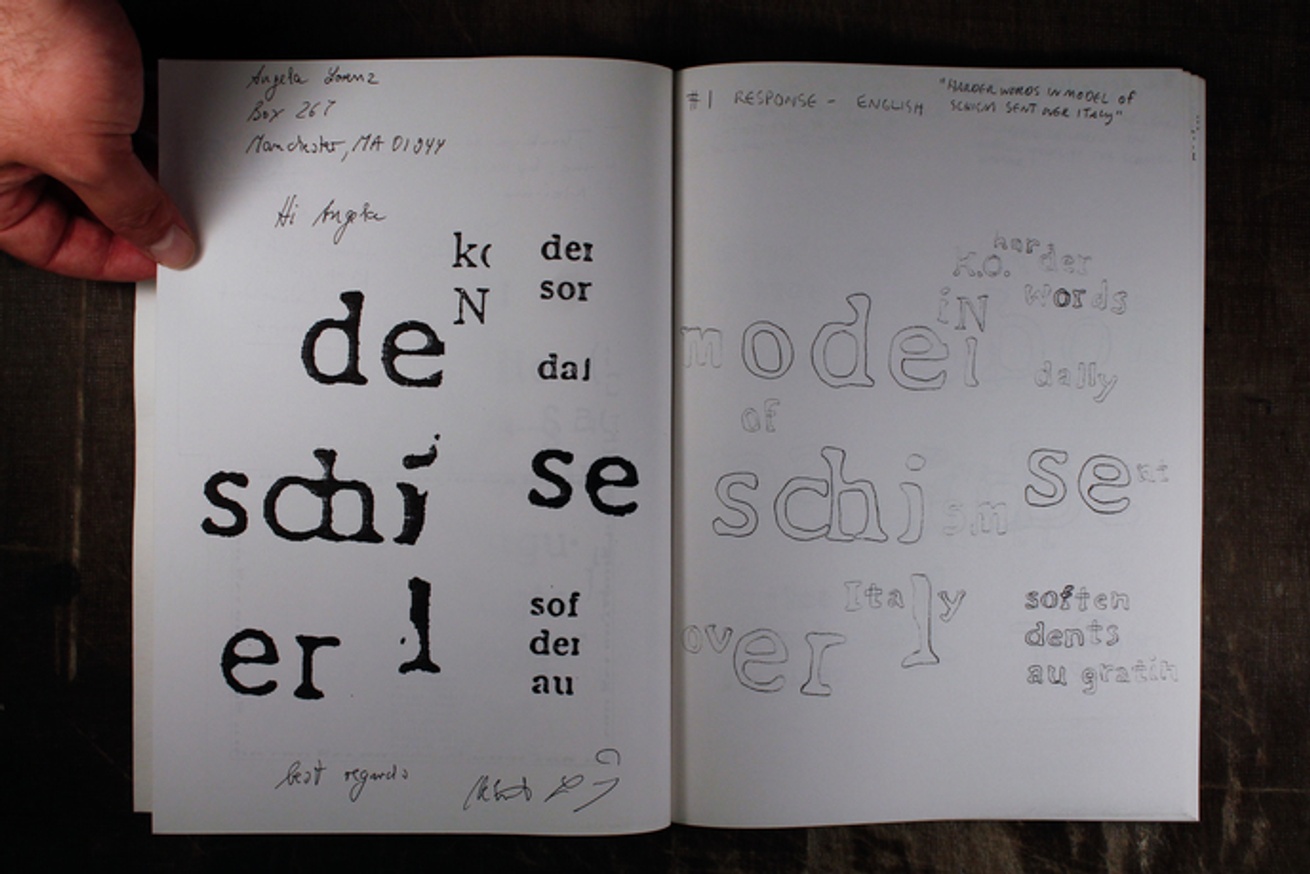 Angela Lorenz
Box 267
Manchester, MA 01944
Hi Angela
ko
N
de
der
sor
dal
schi
se
er l
sof
der
au
best regards
#1 RESPONSE - ENGLISH
"HARDER WORDS IN MODEL OF
SCHISM SENT OVER ITALY"
harder
K.O.
words
iN
model
dally
of
schism
sent
Italy
over
soften
dents
au gratin